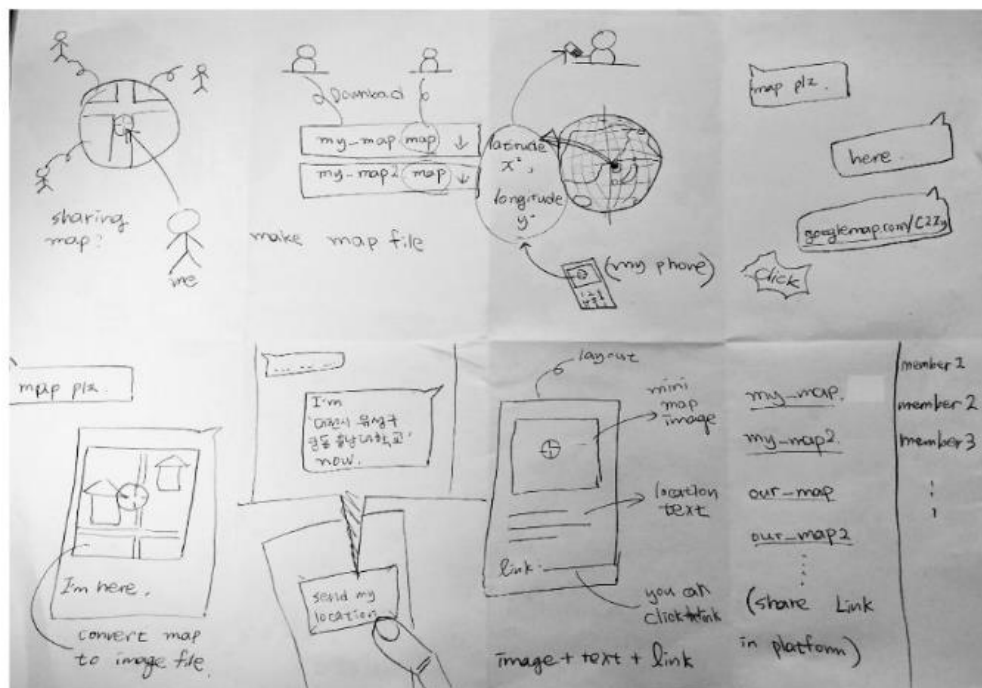 sharing
map?
me
Download
my_map map ↓
my_map2 map ↓
make map file
latitude
x°,
longitude
y°
(my phone)
map plz.
here.
googlemap.com/C2Xy
click
map plz.
I'm here.
convert map
to image file.
.......
I'm
대전시 유성구
궁동 충남대학교,
now.
send my
location
layout
mini
map
image
location
text
link:
you can
click link
image + text + link
my_map.
my_map2.
our_map
our_map2
(share Link
in platform)
member 1
member 2
member 3